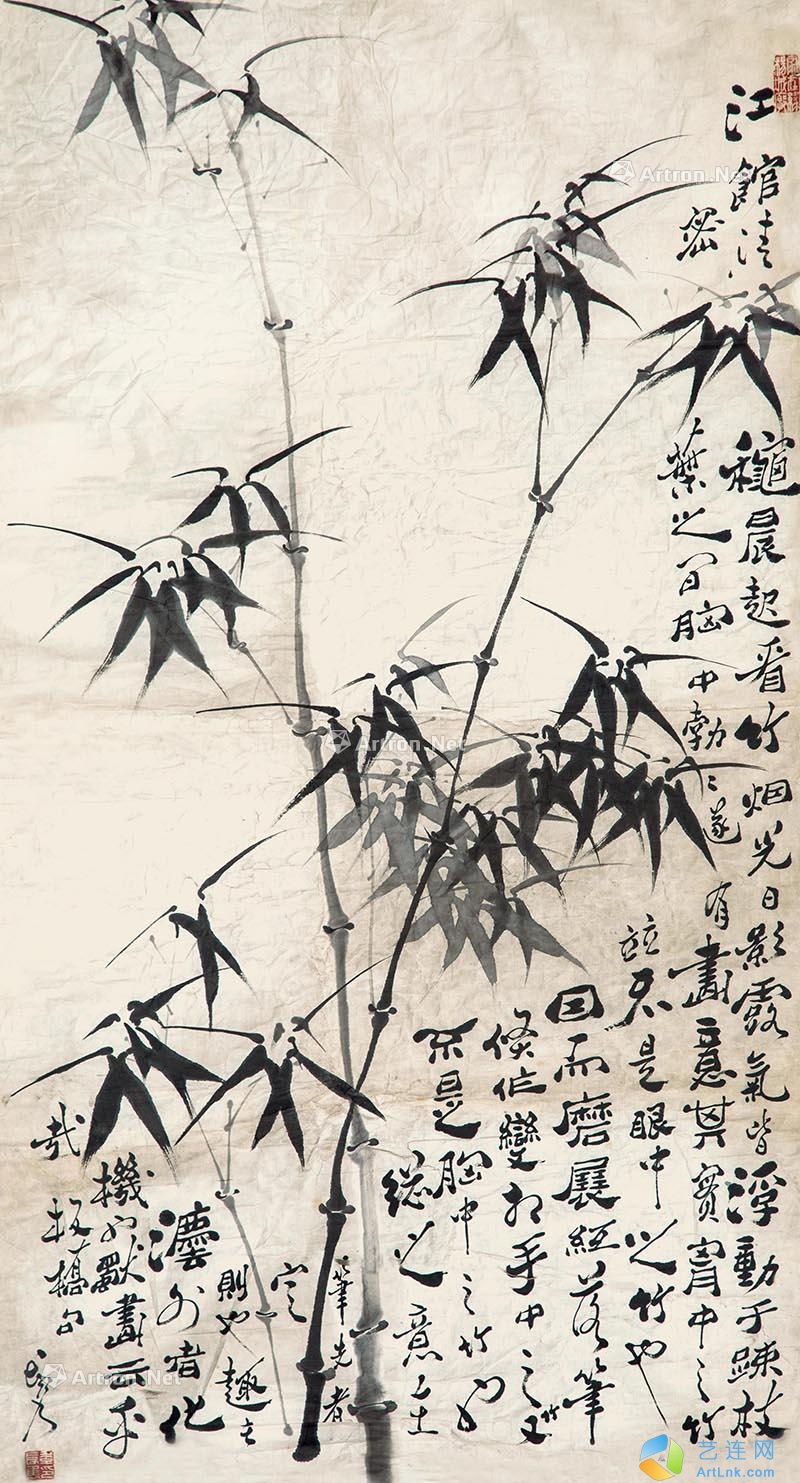 江館清龝晨起看竹烟光日影露氣皆浮動于踈枝
密葉之間胸中勃〻遂有畫意其實胷中之竹
竝不是眼中之竹也
因而磨展紙落筆
倏作變相手中之竹又
不是胸中之竹也
総之意在
筆先者
定
則也趣在
灋外者化
機也獨畫云乎
哉板橋句
Artron.Net
Artron.Net
Artron.Net
艺连网
ArtLnk.com